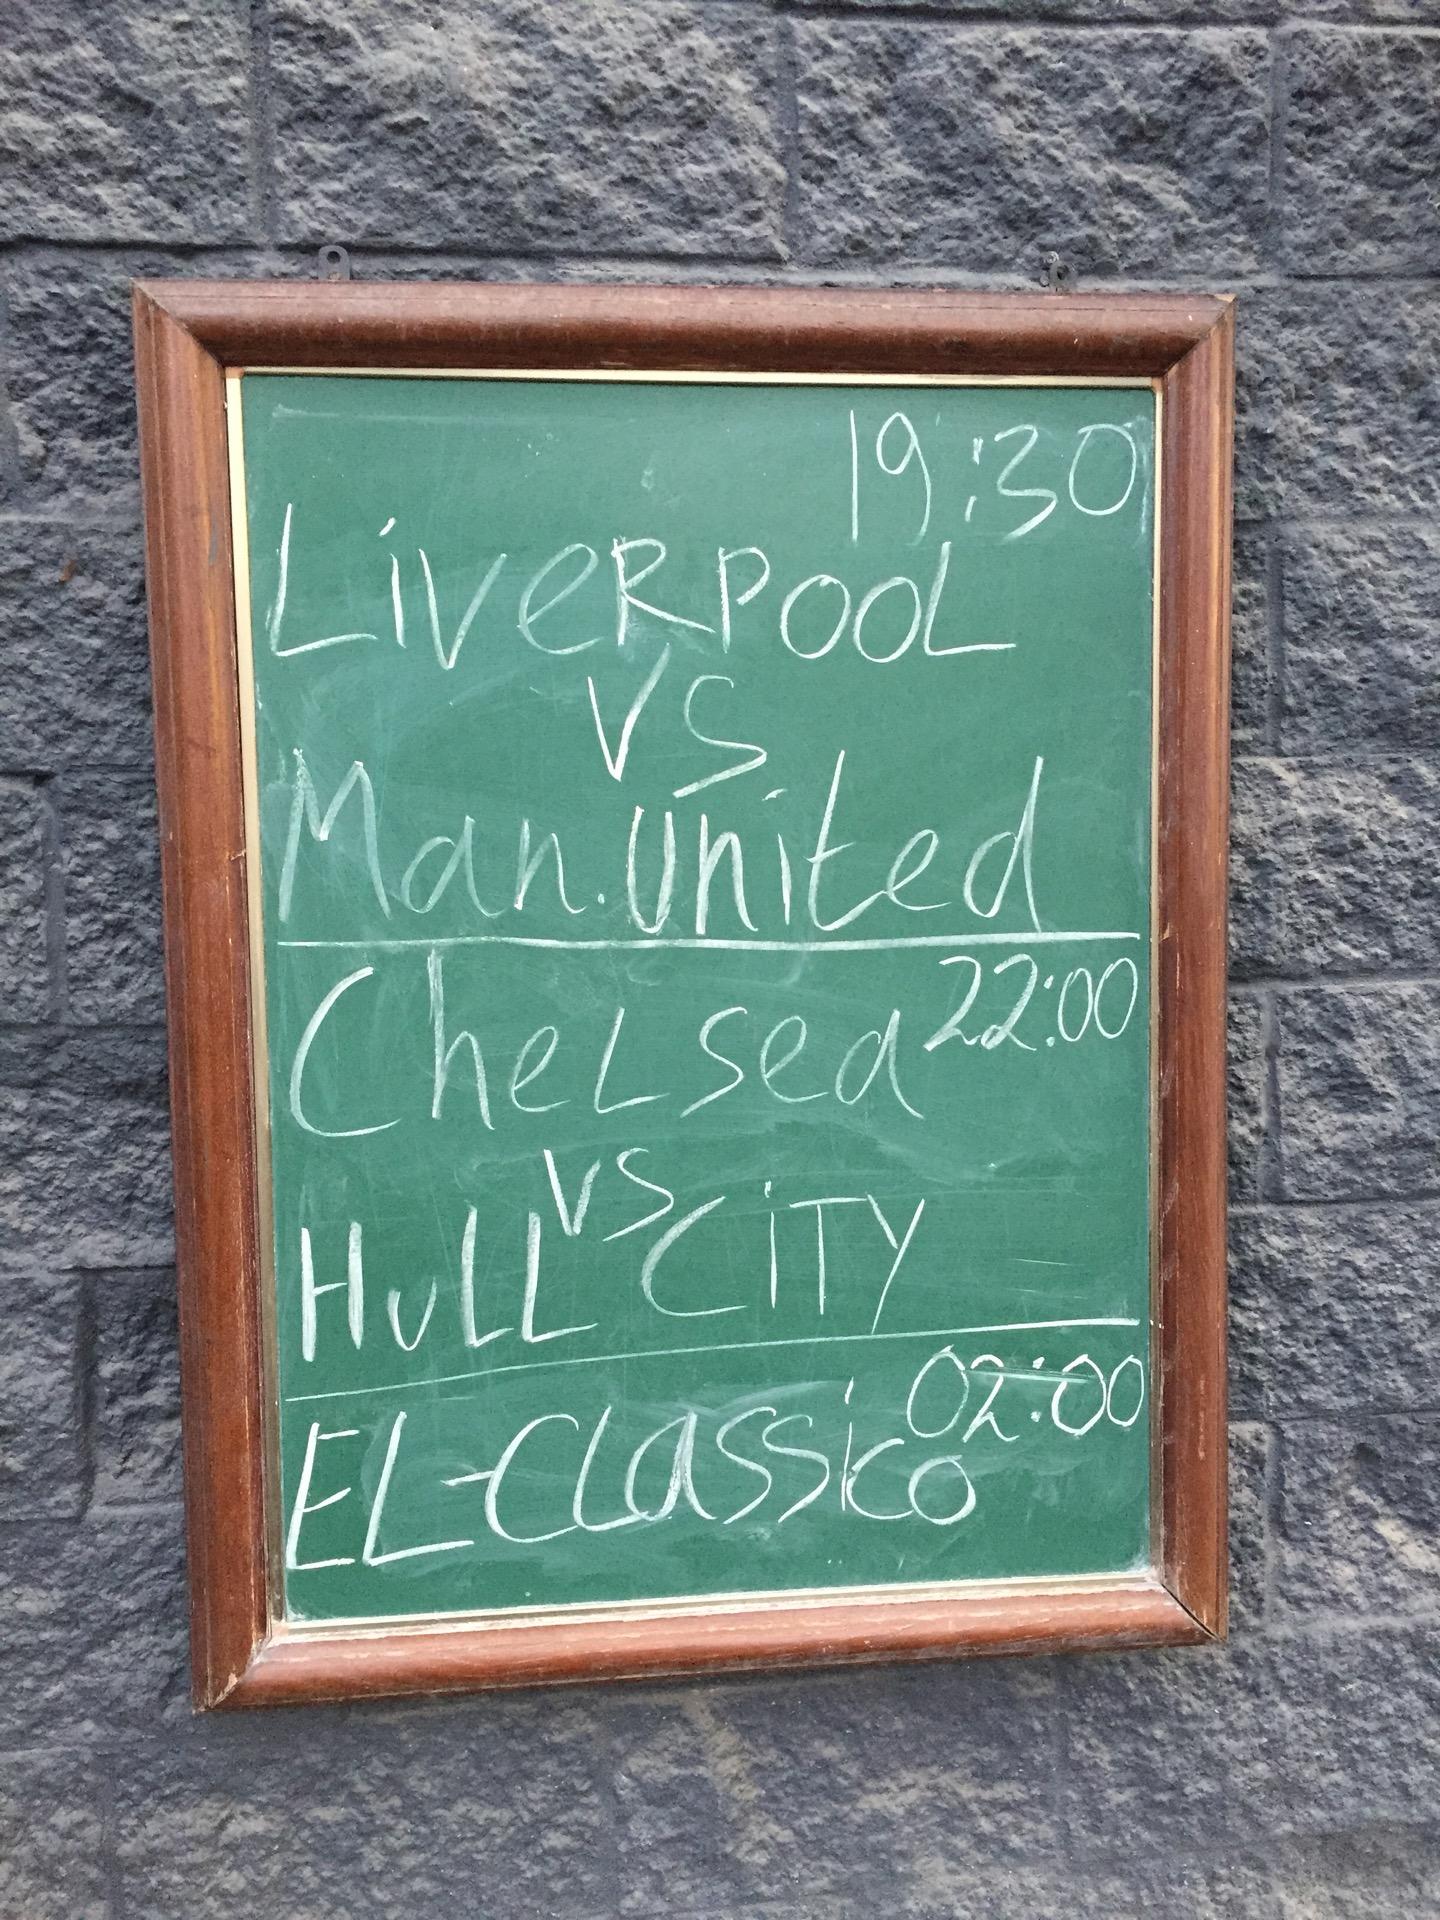 19:30
LiveRpooL
VS
Man.United
CheLsea 22:00
VS
HuLL CiTY
02:00
EL-CLassico